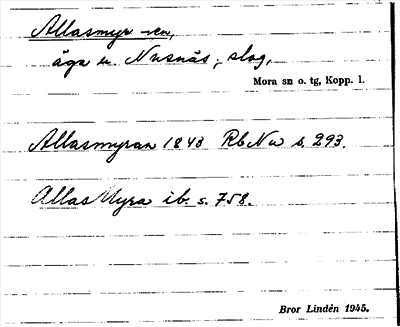 Allasmyr -en,
äga n. Nusnäs, slog,
Mora sn o. tg, Kopp. l.
Allasmyran 1843 Rb Nu s. 293.
Allas Myra ib. s. 758.
Bror Lindén 1945.